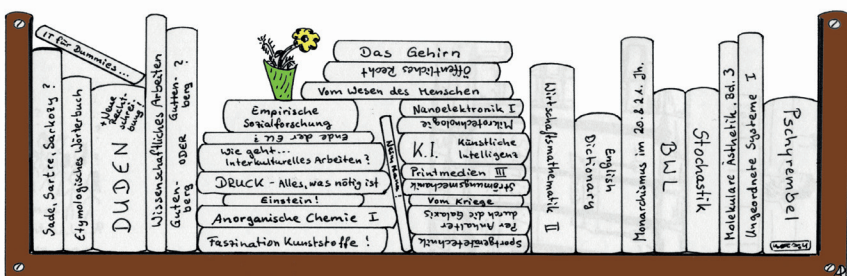 Sade, Sartre, Sarkosy?
IT für Dummies...
Etymologisches Wörterbuch
DUDEN
+ Neue
Recht-
schrei-
bung!
Wissenschaftliches Arbeiten
Guten-
berg
ODER
Gutten-
berg?
Das Gehirn
Öffentliches Recht
Vom Wesen des Menschen
Empirische
Sozialforschung
Ende der EU?
Wie geht...
Interkulturelles Arbeiten?
DRUCK - Alles, was nötig ist
Einstein!
Anorganische Chemie I
Faszination Kunststoffe!
Nanoelektronik I
Mikrotechnologie
K.I.
Künstliche
Intelligenz
Printmedien III
Strömungsmechanik
Vom Kriege
Per Anhalter
durch die Galaxis
Sportgerätetechnik
Wirtschaftsmathematik II
English
Dictionary
Monarchismus im 20. & 21. Jh.
BWL
Stochastik
Molekulare Ästhetik. Bd. 3
Ungeordnete Systeme I
Pschyrembel